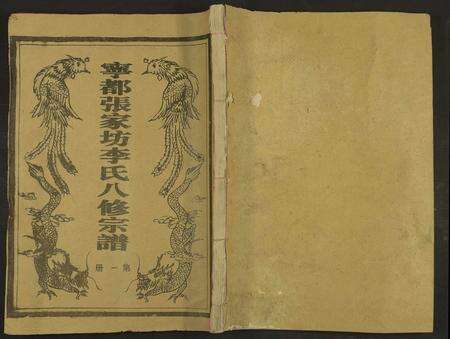 寧都張家坊李氏八修宗譜
第一册